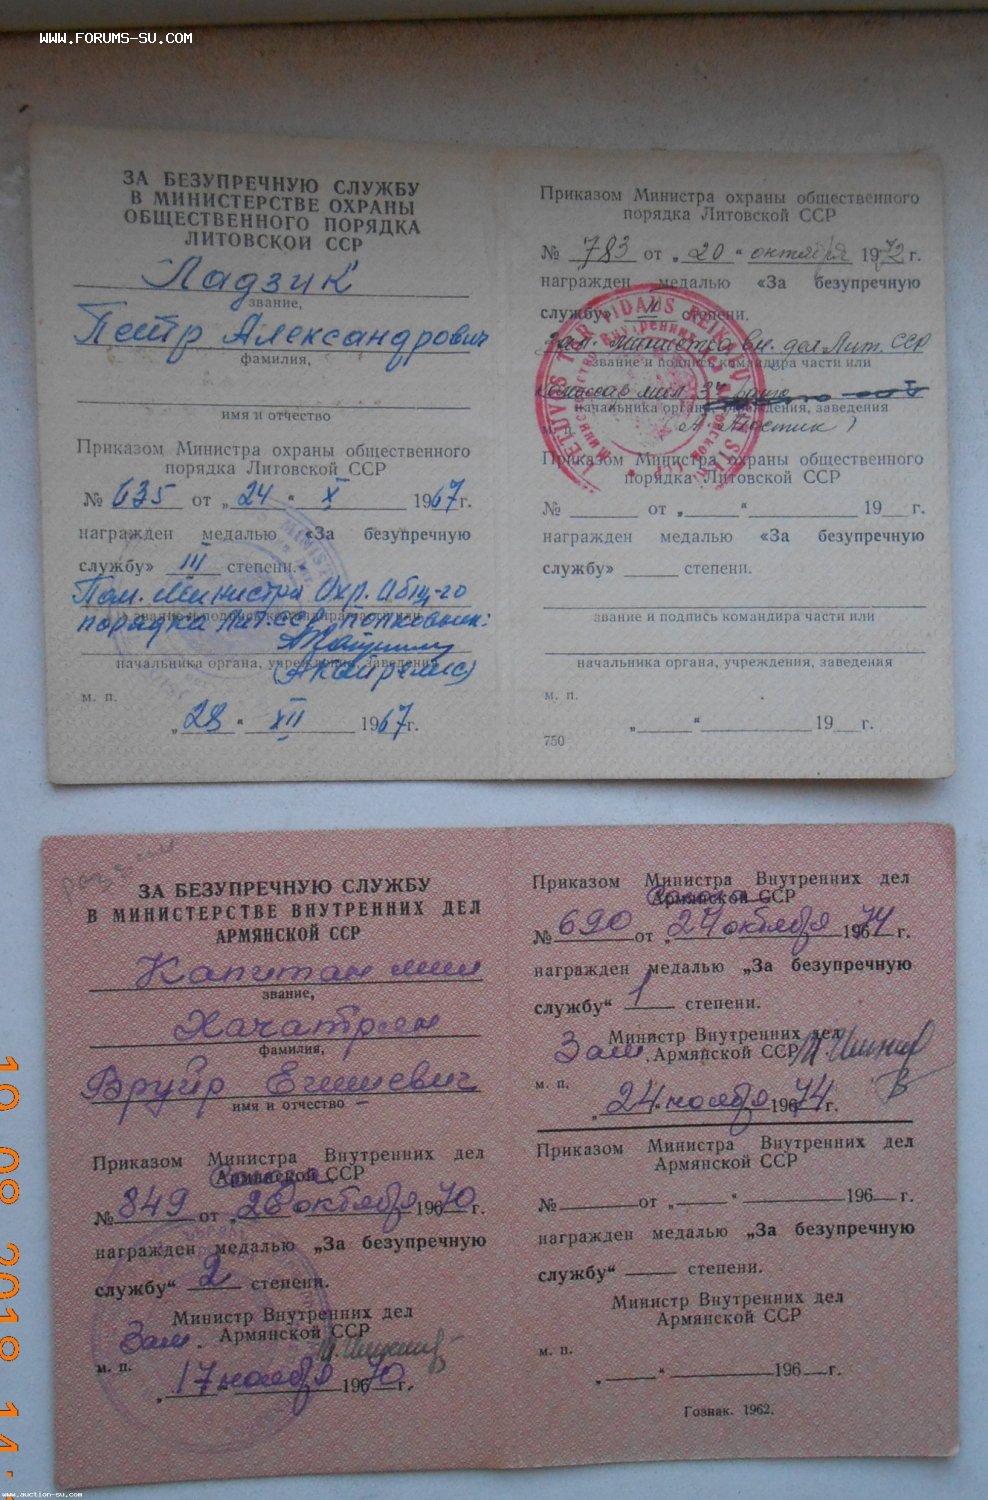 WWW.FORUMS-SU.COM
ЗА БЕЗУПРЕЧНУЮ СЛУЖБУ
В МИНИСТЕРСТВЕ ОХРАНЫ
ОБЩЕСТВЕННОГО ПОРЯДКА
ЛИТОВСКОЙ ССР
Ладзик
звание,
Петр Александрович
фамилия,
имя и отчество
Приказом Министра охраны общественного
порядка Литовской ССР
№ 635 от „ 24 “ X 1967 г.
награжден медалью «За безупречную
службу» III степени.
Пом. Министра Охр. Общ-го
порядка Лит. ССР, полковник:
звание и подпись командира части или
начальника органа, учреждения, заведения
м. п.
„ 28 “ XII 1967 г.
Приказом Министра охраны общественного
порядка Литовской ССР
№ 783 от „ 20 “ октября 1972 г.
награжден медалью «За безупречную
службу» II степени.
Зам. Министра вн. дел Лит. ССР
звание и подпись командира части или
комиссар мил. 3 ранга
начальника органа, учреждения, заведения
м. п.
Приказом Министра охраны общественного
порядка Литовской ССР
№ от „ “ 19 г.
награжден медалью «За безупречную
службу» степени.
звание и подпись командира части или
начальника органа, учреждения, заведения
м. п.
„ “ 19 г.
750
ЗА БЕЗУПРЕЧНУЮ СЛУЖБУ
В МИНИСТЕРСТВЕ ВНУТРЕННИХ ДЕЛ
АРМЯНСКОЙ ССР
Капитан мил
звание,
Хачатрян
фамилия,
Вруйр Егишевич
имя и отчество
Приказом Министра Внутренних дел
Союза Армянской ССР
№ 849 от „ 26 октября 19670 г.
награжден медалью „За безупречную
службу“ 2 степени.
Министр Внутренних дел
Зам. Армянской ССР
м. п.
„ 17 ноября 19670 г.
Приказом Министра Внутренних дел
Союза Армянской ССР
№ 690 от „ 24 октября 19674 г.
награжден медалью „За безупречную
службу“ 1 степени.
Министр Внутренних дел
Зам. Армянской ССР
м. п.
„ 24 “ ноября 19674 г.
Приказом Министра Внутренних дел
Армянской ССР
№ от „ “ 196 г.
награжден медалью „За безупречную
службу“ степени.
Министр Внутренних дел
Армянской ССР
м. п.
„ “ 196 г.
Гознак. 1962.
www.auction-su.com